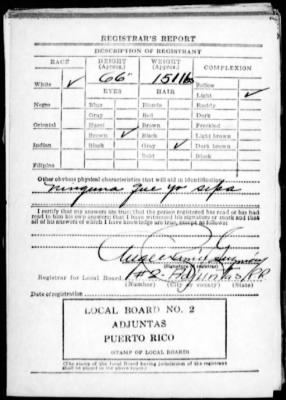 REGISTRAR'S REPORT
DESCRIPTION OF REGISTRANT
RACE HEIGHT (Approx.) WEIGHT (Approx.) COMPLEXION
66" 151 lbs
White ✓ Sallow
EYES HAIR Light ✓
Negro Blue Blonde Ruddy
Gray Red Dark
Oriental Hazel Brown Freckled
Brown ✓ Black Light brown
Indian Black Gray ✓ Dark brown
Bald Black
Filipino
Other obvious physical characteristics that will aid in identification
ninguna que yo sepa
I certify that my answers are true; that the person registered has read or has had
read to him his own answers; that I have witnessed his signature or mark and that
all of his answers of which I have knowledge are true, except as follows:
(Signature of registrar)
Registrar for Local Board #2 Adjuntas P.R.
(Number) (City or county) (State)
Date of registration
LOCAL BOARD NO. 2
ADJUNTAS
PUERTO RICO
(STAMP OF LOCAL BOARD)
(The stamp of the Local Board having jurisdiction of the registrant
shall be placed in the above space.)